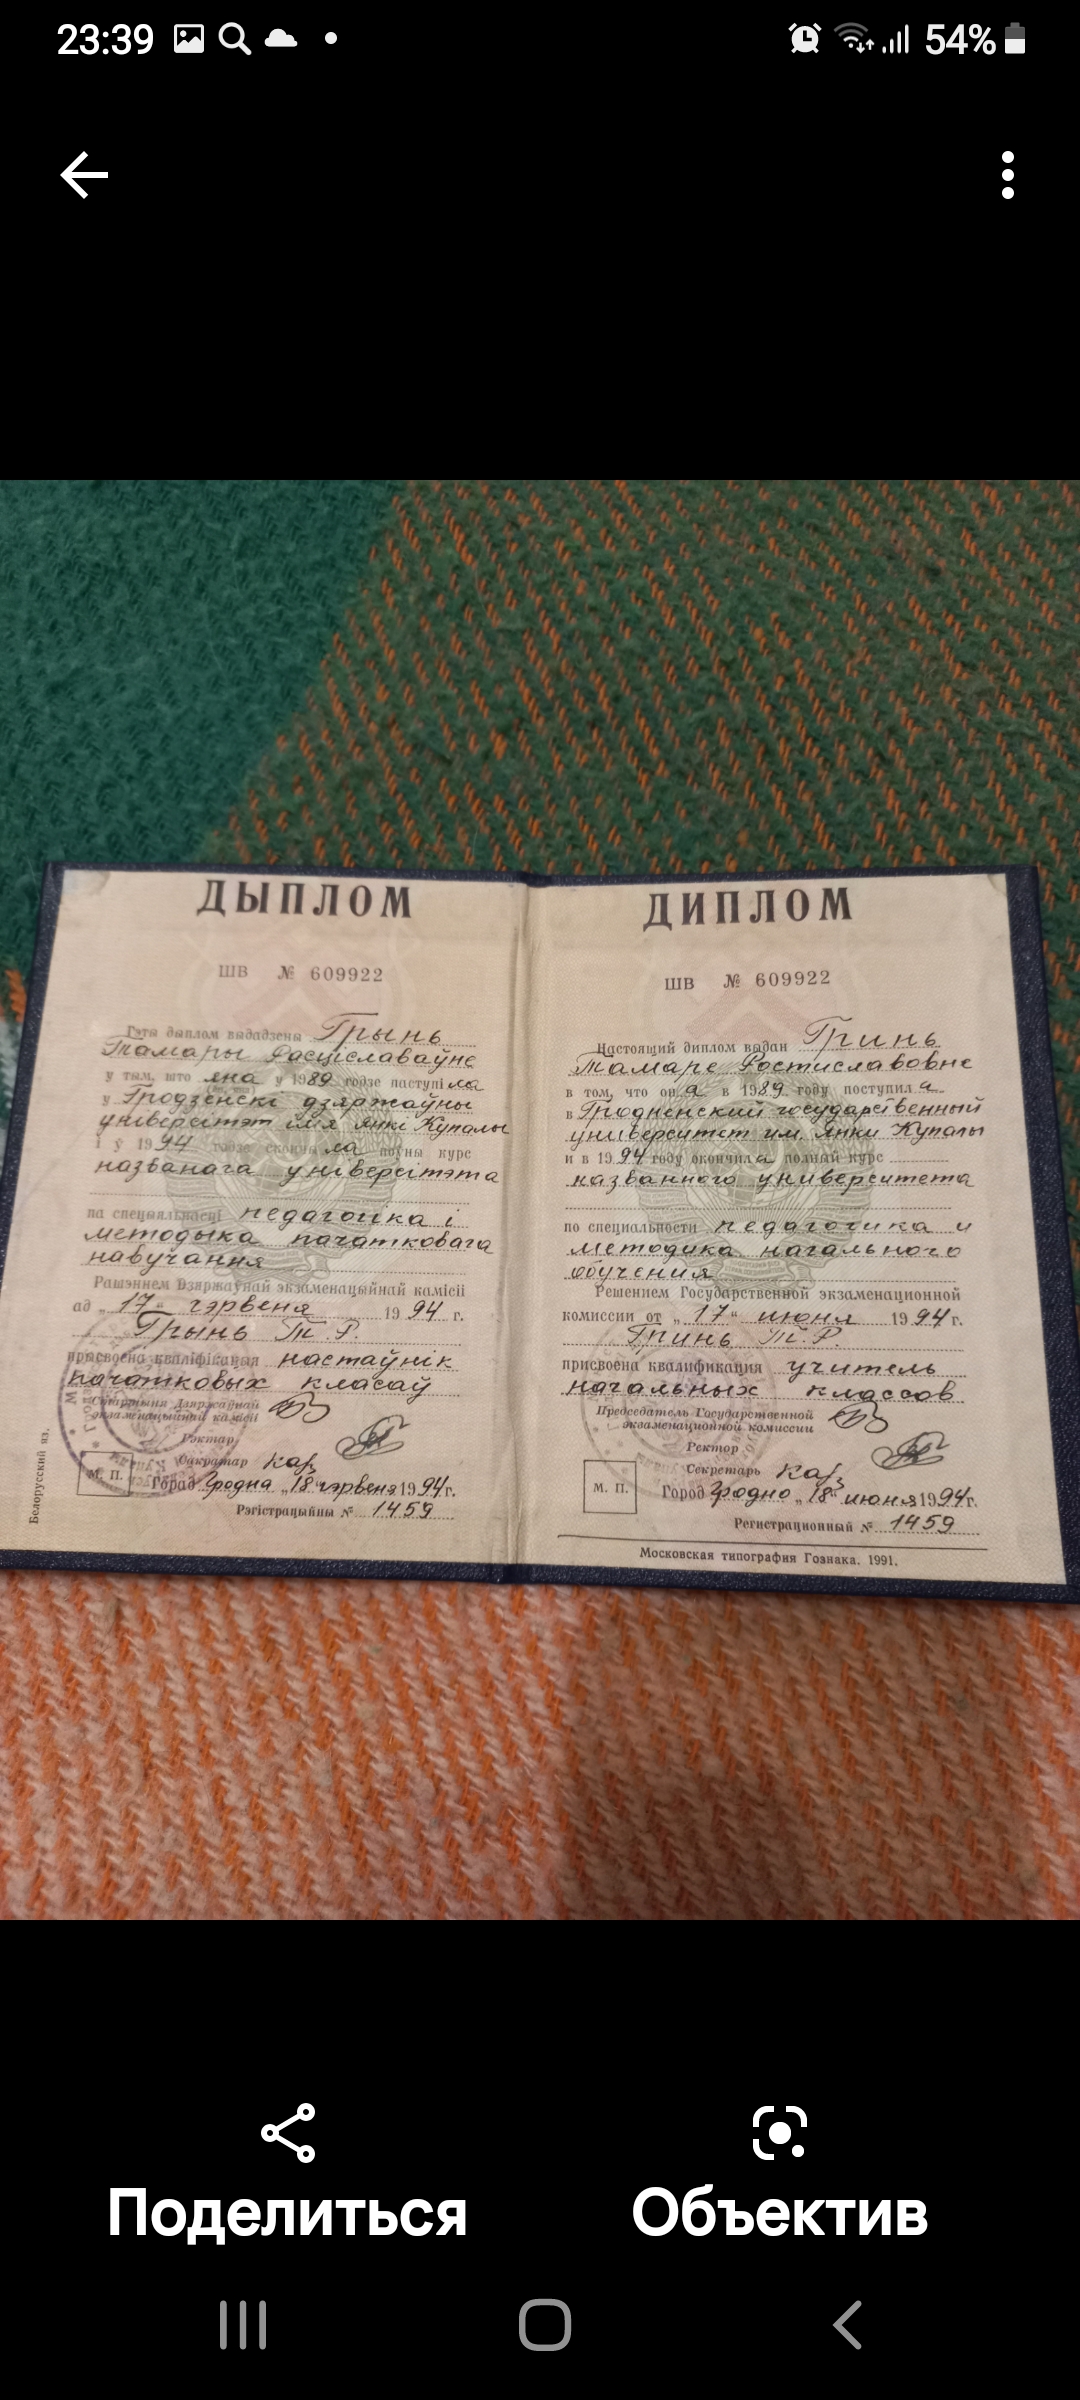 23:39
54%
ДЫПЛОМ
ШВ № 609922
Гэты дыплом выдадзены Грынь
Тамары Расціславаўне
у тым, што яна у 1989 годзе паступіла
у Гродзенскі дзяржаўны
універсітэт імя Янкі Купалы
і ў 1994 годзе скончыла поўны курс
названага універсітэта
па спецыяльнасці педагогіка і
методыка пачатковага
навучання
Рашэннем Дзяржаўнай экзаменацыйнай камісіі
ад „17“ чэрвеня 1994 г.
Грынь Т.Р.
прысвоена кваліфікацыя настаўнік
пачатковых класаў
Старшыня Дзяржаўнай
экзаменацыйнай камісіі
Рэктар
Сакратар
М. П.
Горад Гродна „18“ чэрвеня 1994г.
Рэгістрацыйны № 1459
Белорусский яз.
ДИПЛОМ
ШВ № 609922
Настоящий диплом выдан Гринь
Тамаре Ростиславовне
в том, что она в 1989 году поступила
в Гродненский государственный
университет им. Янки Купалы
и в 1994 году окончила полный курс
названного университета
по специальности педагогика и
методика начального
обучения
Решением Государственной экзаменационной
комиссии от „17“ июня 1994г.
Гринь Т.Р.
присвоена квалификация учитель
начальных классов
Председатель Государственной
экзаменационной комиссии
Ректор
Секретарь
М. П.
Город Гродно „18“ июня 1994г.
Регистрационный № 1459
Московская типография Гознака. 1991.
Поделиться
Объектив